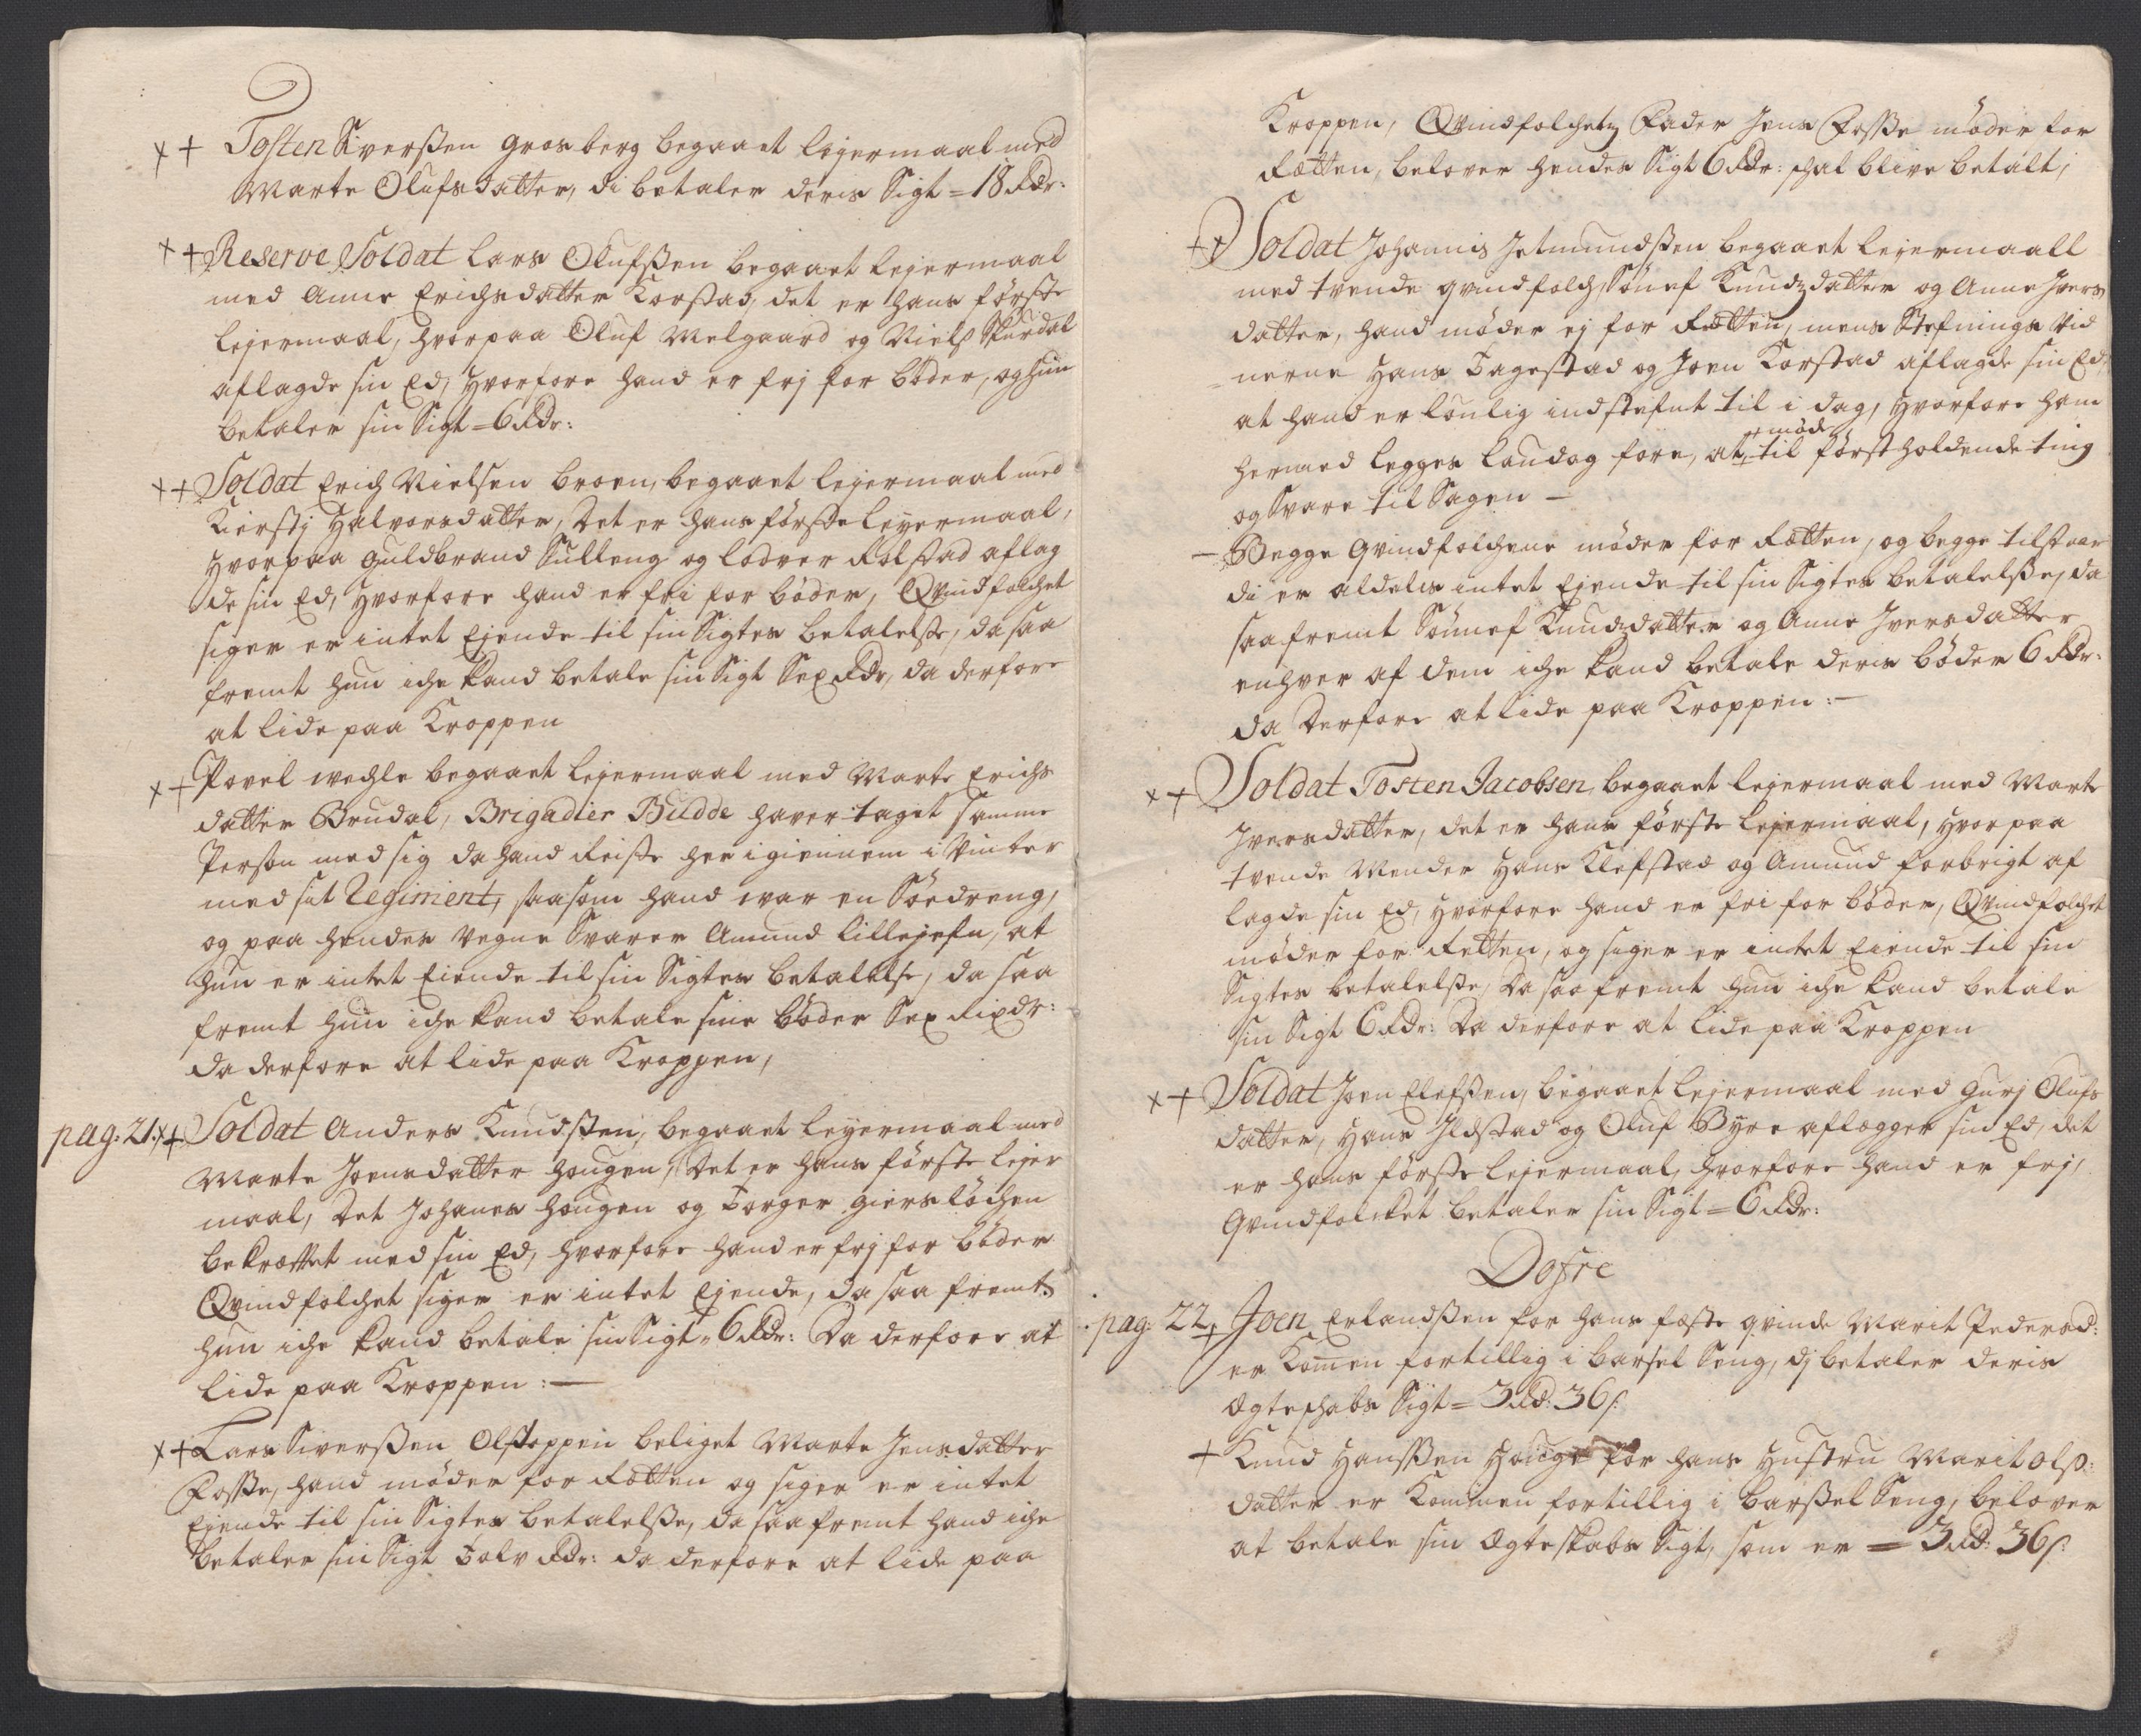 ×+ Tosten Siverßen Grosberg begaaet lejermaal med
Marte Olufsdatter, di betaler deris Sigt = 18 Rdr:
×+ Reserve Soldat Lars Olufßen begaaet lejermaal
med Anne Erichsdatter Korstad, det er hans förste
lejermaal, hvorpaa Oluf Melgaard og Niels Skurdal
aflagde sin Ed, hvorfore hand er frj for böder, og hun
betaler sin Sigt = 6 Rdr:
×+ Soldat Erich Nielsen Broen, begaaet lejermaal med
Kierstj Halvorsdatter, det er hans förste lejermaal,
hvorpaa Guldbrand Sulleng og Lodver Rolstad aflag
de sin Ed, hvorfore hand er fri for böder, Qvindfolchet
siger er intet Ejende til sin Sigtes betalelße, da saa
fremt hun iche kand betale sin Sigt Sex Rdr, da derfore
at lide paa Kroppen
×+ Povel Wehle begaaet lejermaal med Marte Erichs
datter Brudal, Brigadier Budde haver taget samme
Person med sig da hand Reiste her igiennem i Vinter
med sit Regiment, saasom hand war en Söedreng,
og paa hendes Vegne Svarer Amund Lillejefn, at
hun er intet Eiende til sin Sigtes betalelse, da saa
fremt hun iche kand betale sine böder Sex Rixdr:
da derfore at lide paa Kroppen,
pag: 21. ×+ Soldat Anders Knudßen, begaaet lejermaal med
Marte Joensdatter Hougen, det er hans förste lejer
maal, det Johanes Hougen og Torger Gierslöchen
bekræftet med sin Ed, hvorfore hand er frj for böder
Qvindfolchet siger er intet Ejende, da saa fremt
hun iche kand betale sin Sigt = 6 Rdr: da derfore at
lide paa Kroppen: —
×+ Lars Siverßen Olstoppen beliget Marte Jensdatter
Foße, hand möder for Rætten og siger er intet
Ejende til sin Sigtes betalelße, da saafremt hand iche
betaler sin Sigt Tolv Rdr: da derfore at lide paa
Kroppen, Qvindfolchetz Fader Jens Foße möder for
Rætten, belover hendes Sigt 6 Rdr: schal blive betalt,
×+ Soldat Johannis Jetmundßen begaaet lejermaall
med tvende qvindfolch, Sönef Knudzdatter og Anne Jvers
datter, hand möder ej for Rætten, mens Stefnings Vid
nerne Hans Tagestad og Joen Korstad aflagde sin Ed,
at hand er loulig indstefnt til i dag, hvorfore ham
hermed legges Laudag fore, at + möde til först holdende ting
og Svare til Sagen —
— Begge Qvindfolchene möder for Rætten, og begge tilstaar
di er aldelis intet Ejende til sin Sigtes betalelße, da
saafremt Sönnef Knudzdatter og Anne Jversdatter
enhver af dem iche kand betale deris böder 6 Rdr:
da derfore at lide paa Kroppen: —
×+ Soldat Tosten Jacobsen, begaaet lejermaal med Marte
Jversdatter, det er hans förste lejermaal, hvorpaa
tvende Mender Hans Klefstad og Amund Forbrigt af
lagde sin Ed, hvorfore hand er fri for böder, Qvindfolchet
möder for Retten, og siger er intet Eiende til sin
Sigtes betalelße, da saa fremt hun iche kand betale
sin Sigt 6 Rdr: da derfore at lide paa Kroppen
×+ Soldat Joen Elefßen, begaaet lejermaal med Gurj Olufs
datter, Hans Jldstad og Oluf Byre aflegger sin Ed, det
er hans förste lejermaal, hvorfore hand er frj,
Qvindfolcket betaler sin Sigt = 6 Rdr:
Dofre
pag: 22 + Joen Erlandßen for hans fæste qvinde Marit Pedersd:
er Komen fortillig i Barsel Seng, dj betaler deris
Ægteschabs Sigt = 3 Rd: 36 s:
+ Knud Hanßen Houge for hans Hustru Marit Ols:
datter er Kommen fortillig i Barßel Seng, belover
at betale sin Ægteskabs Sigt, som er = 3 Rd: 36 s: